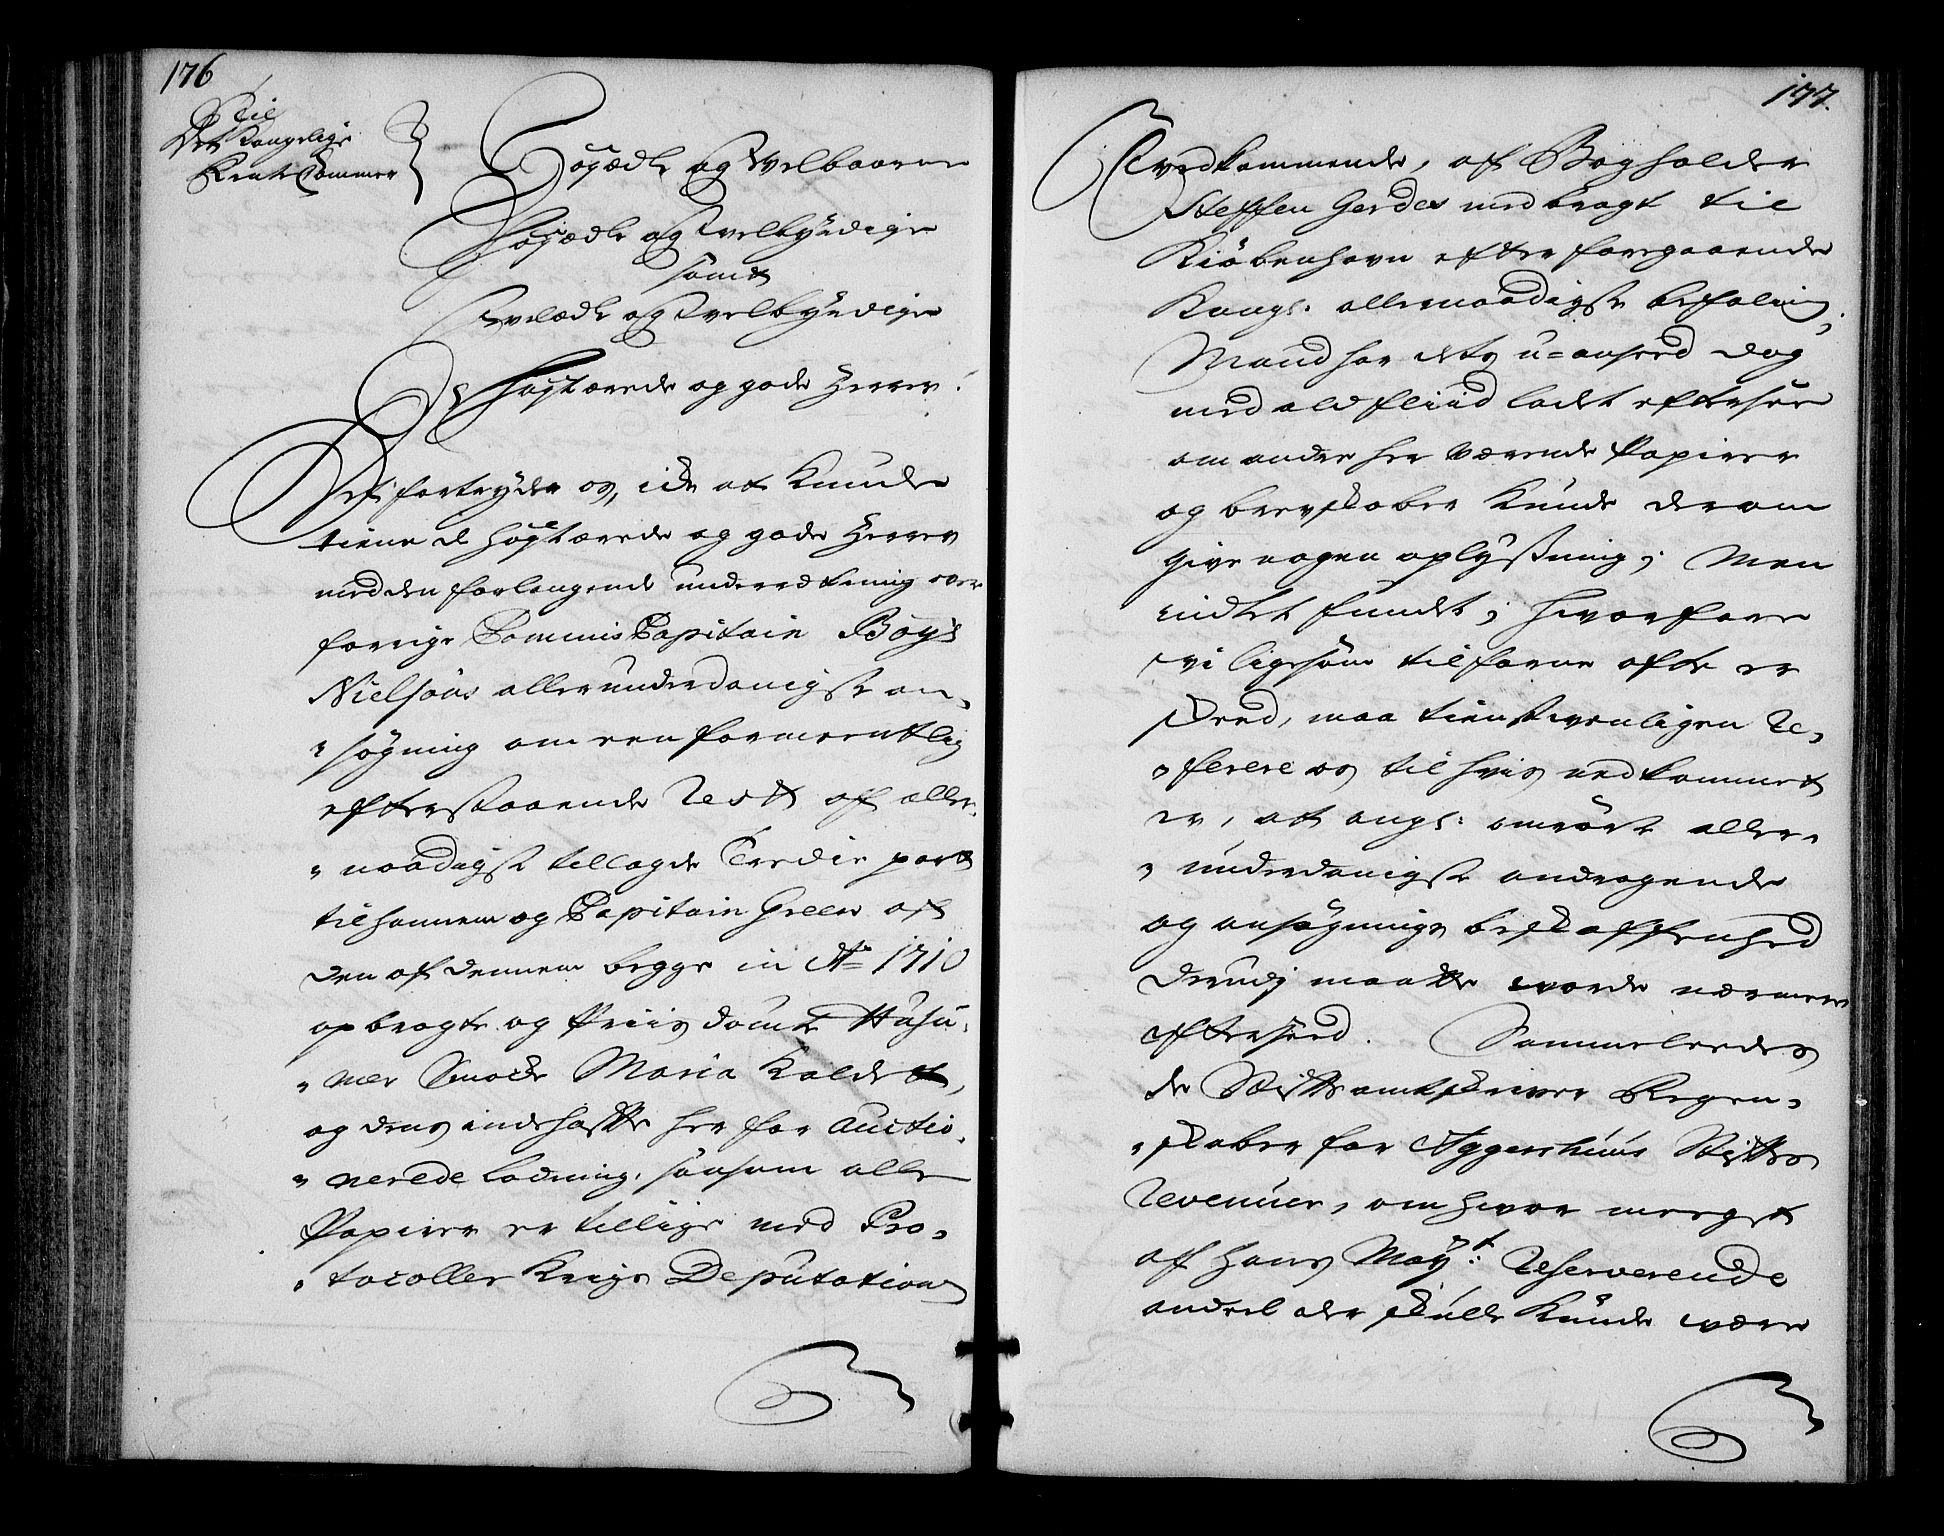 176
Til
Det Kongelige
Rente Cammer
Høyædle og Welbaarne
Høyædle og Welbyrdige
samt
Wælædle og Welbyrdige
Høystærede og gode Herrer!
Det fortryder os, icke at kunde
tiene de høystærede og gode Herrer
med den forlangende underrætning over
forrige Commis Capitain Boye
Nielsøns allerunderdanigste an„
„søgning om een formeentlig
efterstaaende Rest af aller„
„naadigst tillagde Tredie part
til hannem og Capitain Green af
den af dennem begge in Ao 1710
opbragte og Priisdømte Husu„
„mer Smacke Maria kaldet,
og dens indehafte her for auctio„
„nerede ladning, saasom alle
Papirer er tillige med Pro„
„tocoller Krigs Deputation
177.
vedkommende, af Bogholder
Steffen Gerdes nedbragt til
Kiöbenhavn efter foregaaende
Kongl: allernaadigste befaling;
Mand har dets u=anseed dog
med ald fliid ladet eftersee
om andre her værende Papirer
og brevskaber kunde derom
give nogen oplysning; Men
indtet fundet; hvorfore
vi ligesom tilforne ofte er
skeed, maa tienstvenligen Re„
„ferere os til hvis nedkommet
er, at angl: omrørte aller„
„underdanigste andragende
og ansøgnings beskaffenhed
derudj maatte worde nærmere
efterseed. Sammeleedes
de Stiftamtskriver Regen„
„skaber for Aggershuus Stiftes
Revenuer, om hvor meeget
af Hans Mayt: Reserverende
andeel der skulle kunde være